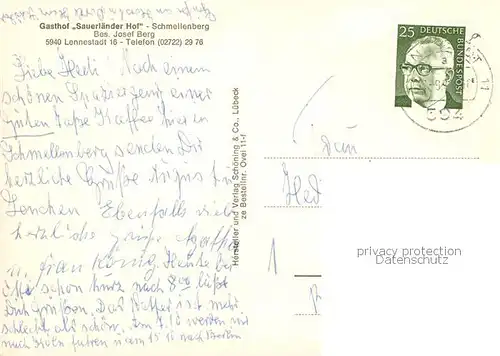 Gasthof „Sauerländer Hof" - Schmellenberg
Bes. Josef Berg
5940 Lennestadt 16 - Telefon (02722) 29 76
Liebe Hedi! Nach einem
schönen Spaziergang einer
guten Tasse Kaffee hier in
Schmellenberg senden Dir
herzliche Grüße August u.
Lenchen Ebenfalls viele
herzliche Grüße Agathe
u. Frau König. Heute bei
schon kurz nach 8°° läßt
Dich grüßen. Das Wetter ist mehr
schlecht als schön. Am 7.10 werden wir
nach Köln fahren u am 15 10 nach Berlin
Hersteller und Verlag Schöning & Co., Lübeck
ze Bestellnr. Ovel 11-f
25
DEUTSCHE BUNDESPOST
594
11
a
Frau
Hed
1
privacy protection
Datenschutz